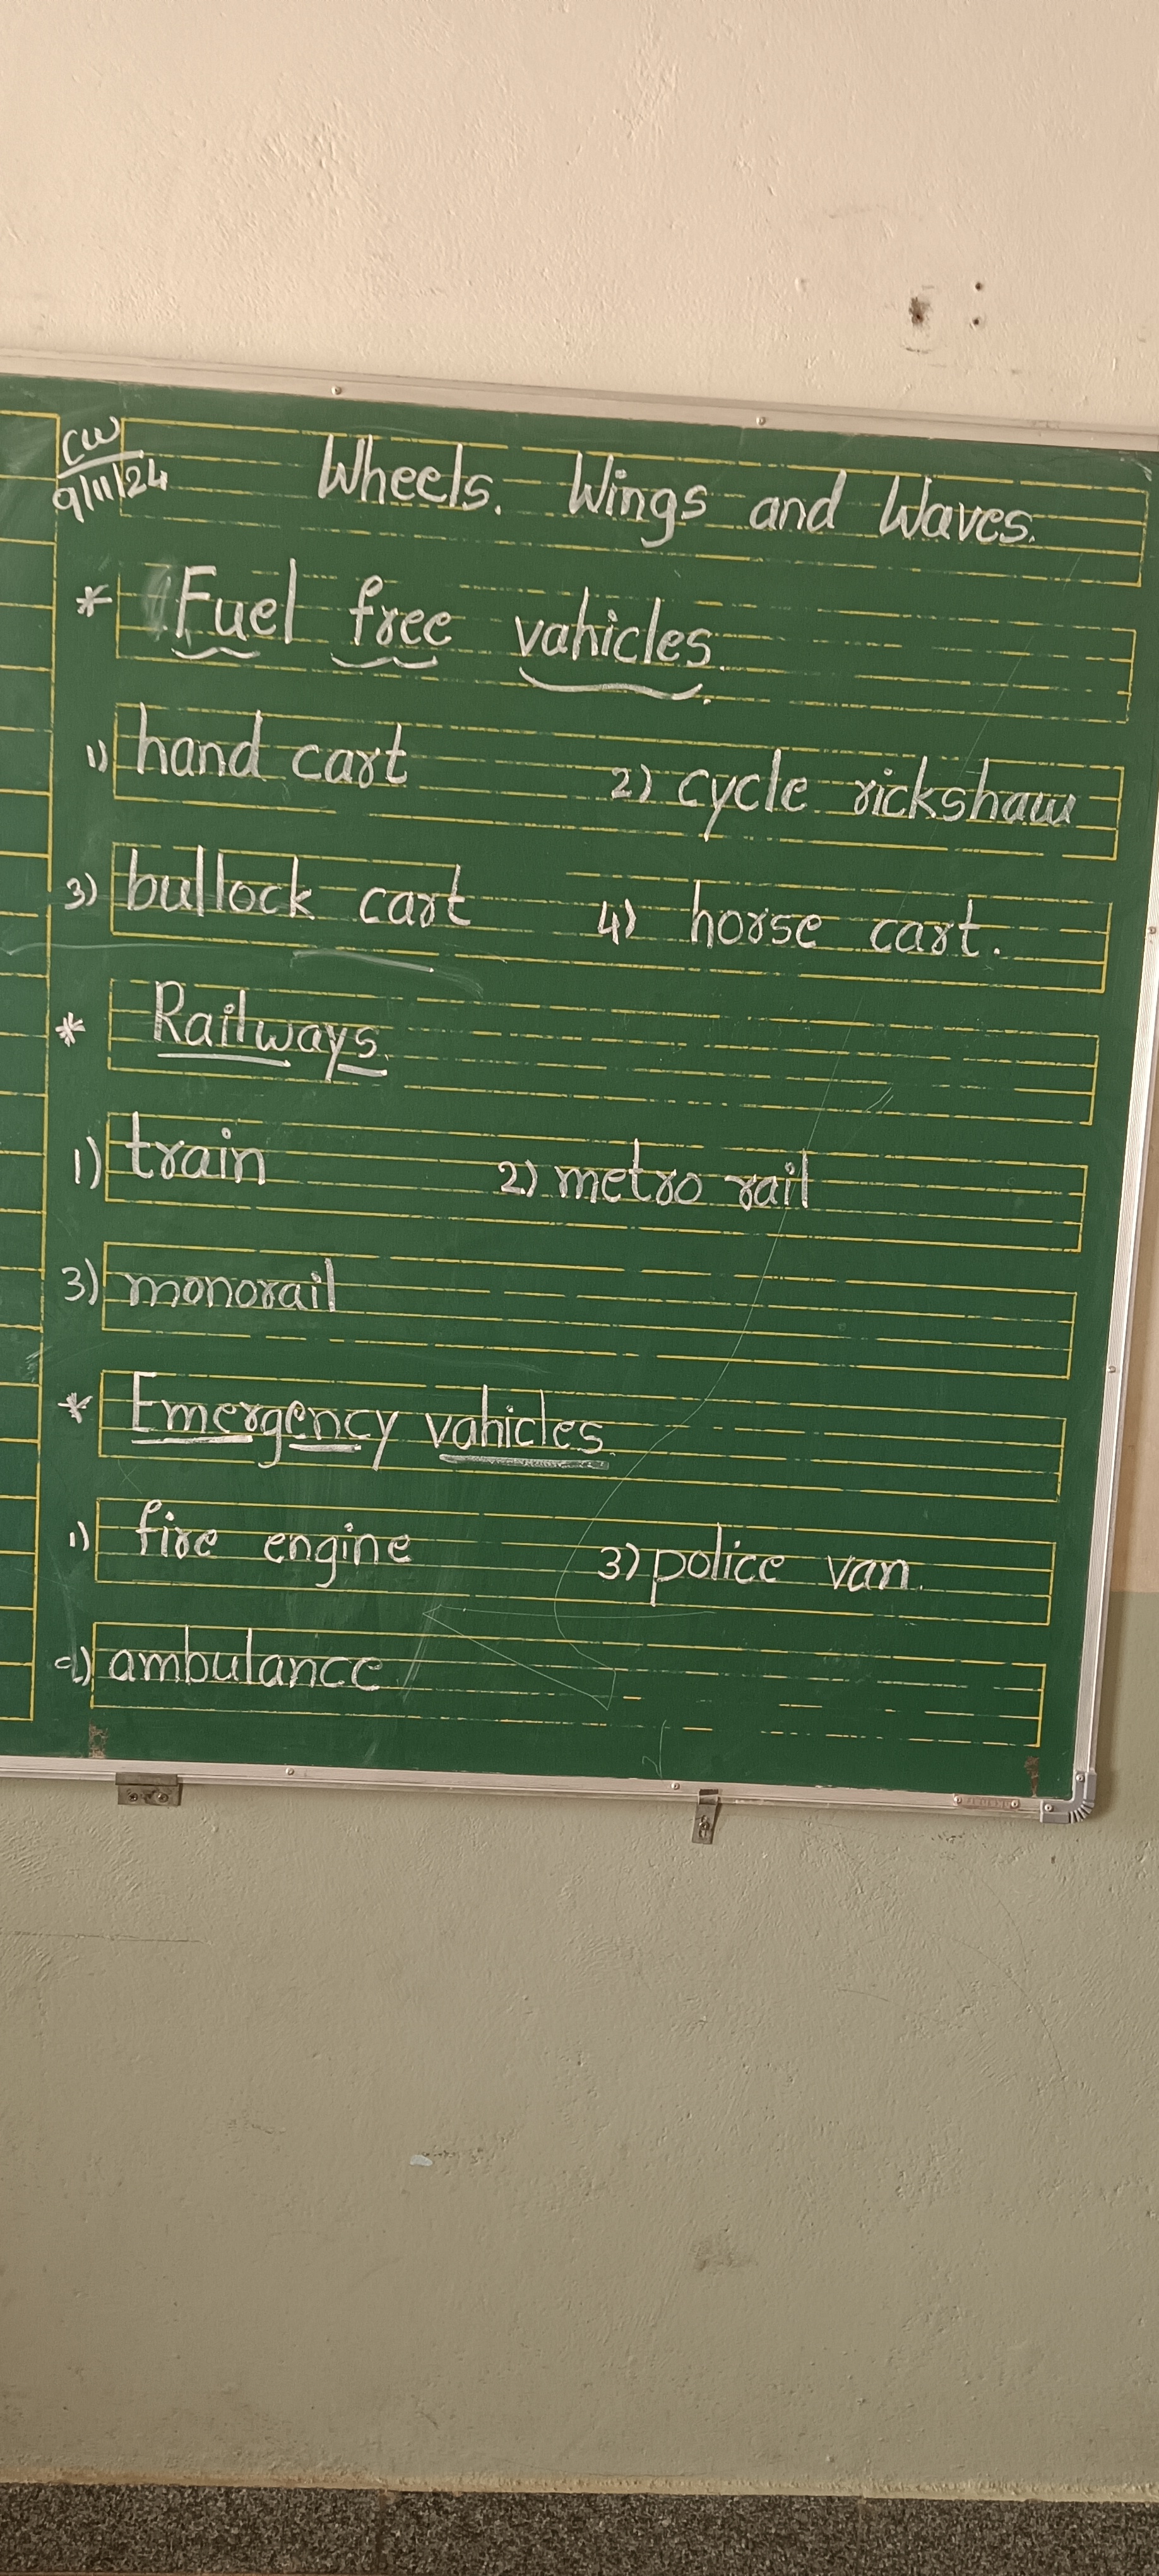 CW
9/11/24
Wheels. Wings and Waves.
* Fuel free vahicles.
1) hand cart 2) cycle rickshaw
3) bullock cart 4) horse cart.
* Railways.
1) train 2) metro rail
3) monorail
* Emergency vahicles.
1) fire engine 3) police van.
2) ambulance